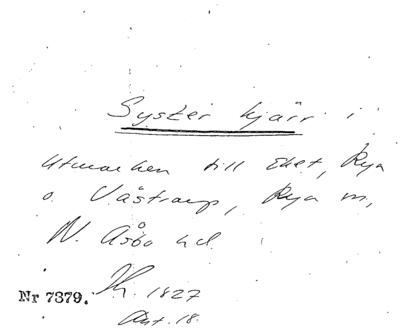 Syster kjärr i
utmarken till Eket, Rya
o. Västrarp, Rya m,
N. Åsbo hd
Nr 7379. Kh. 1827
Akt. 18.